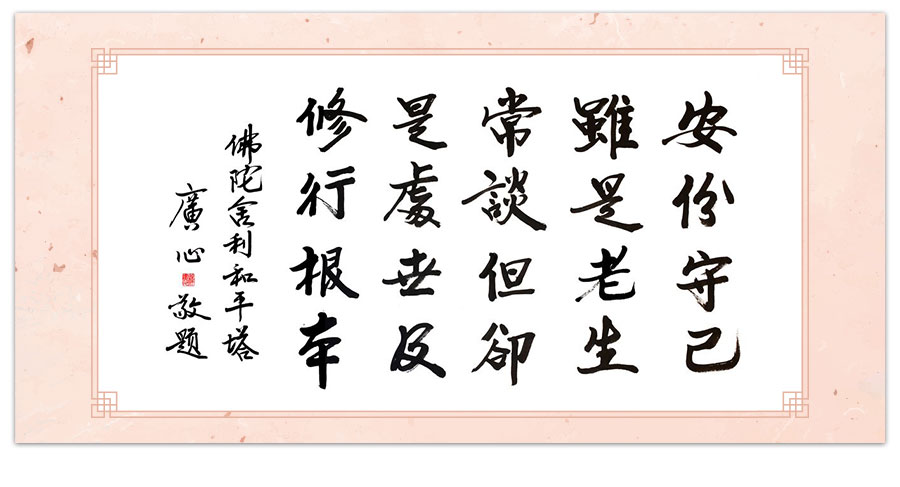 安份守己
雖是老生
常談但卻
是處世及
修行根本
佛陀舍利和平塔
廣心敬題